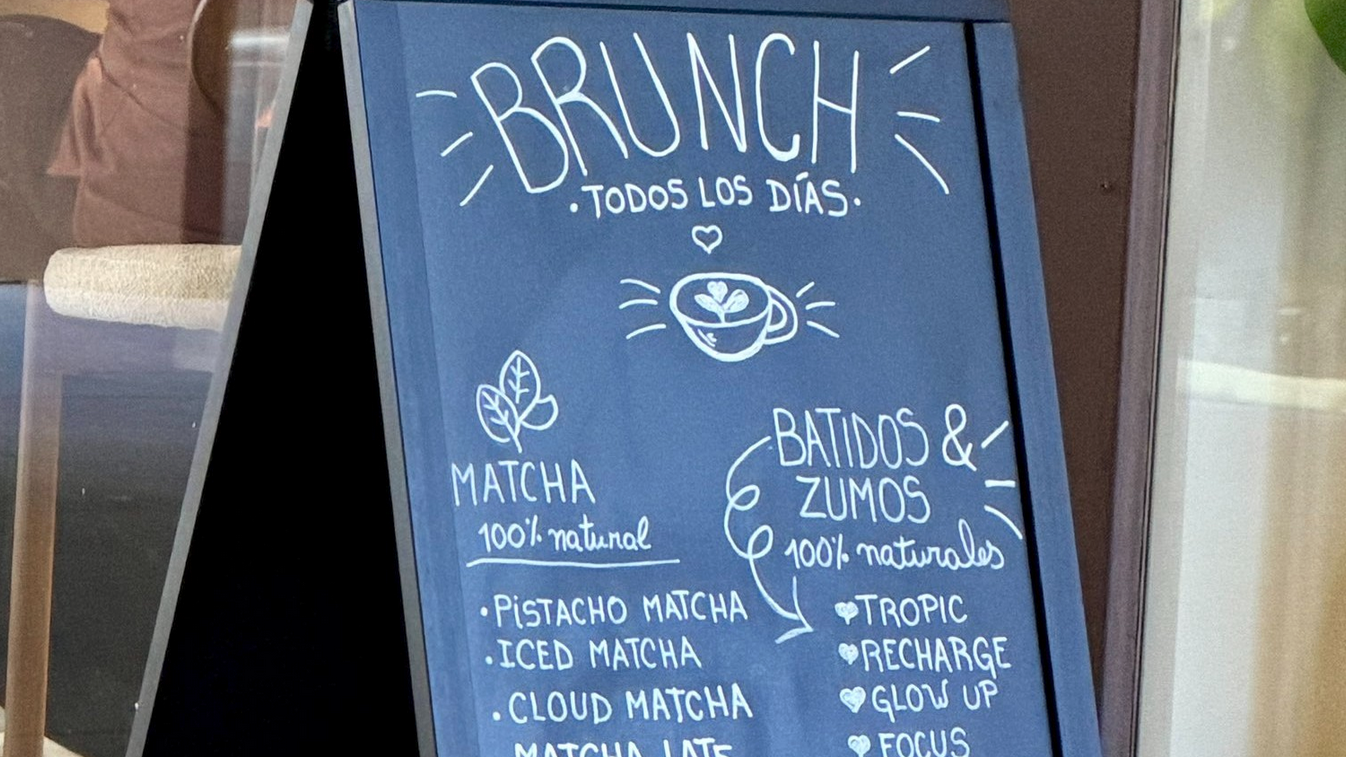 BRUNCH
·TODOS LOS DÍAS·
MATCHA
100% natural
·PISTACHO MATCHA
·ICED MATCHA
·CLOUD MATCHA
MATCHA LATE
BATIDOS &
ZUMOS
100% naturales
TROPIC
RECHARGE
GLOW UP
FOCUS